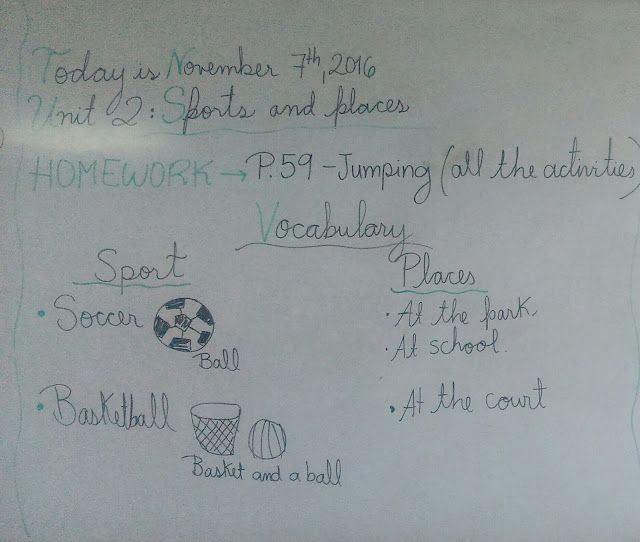 Today is November 7th, 2016
Unit 2: Sports and places
HOMEWORK → P.59 - Jumping (all the activities)
Vocabulary
Sport
Places
• Soccer
Ball
• At the park.
• At school.
• Basketball
Basket and a ball
• At the court